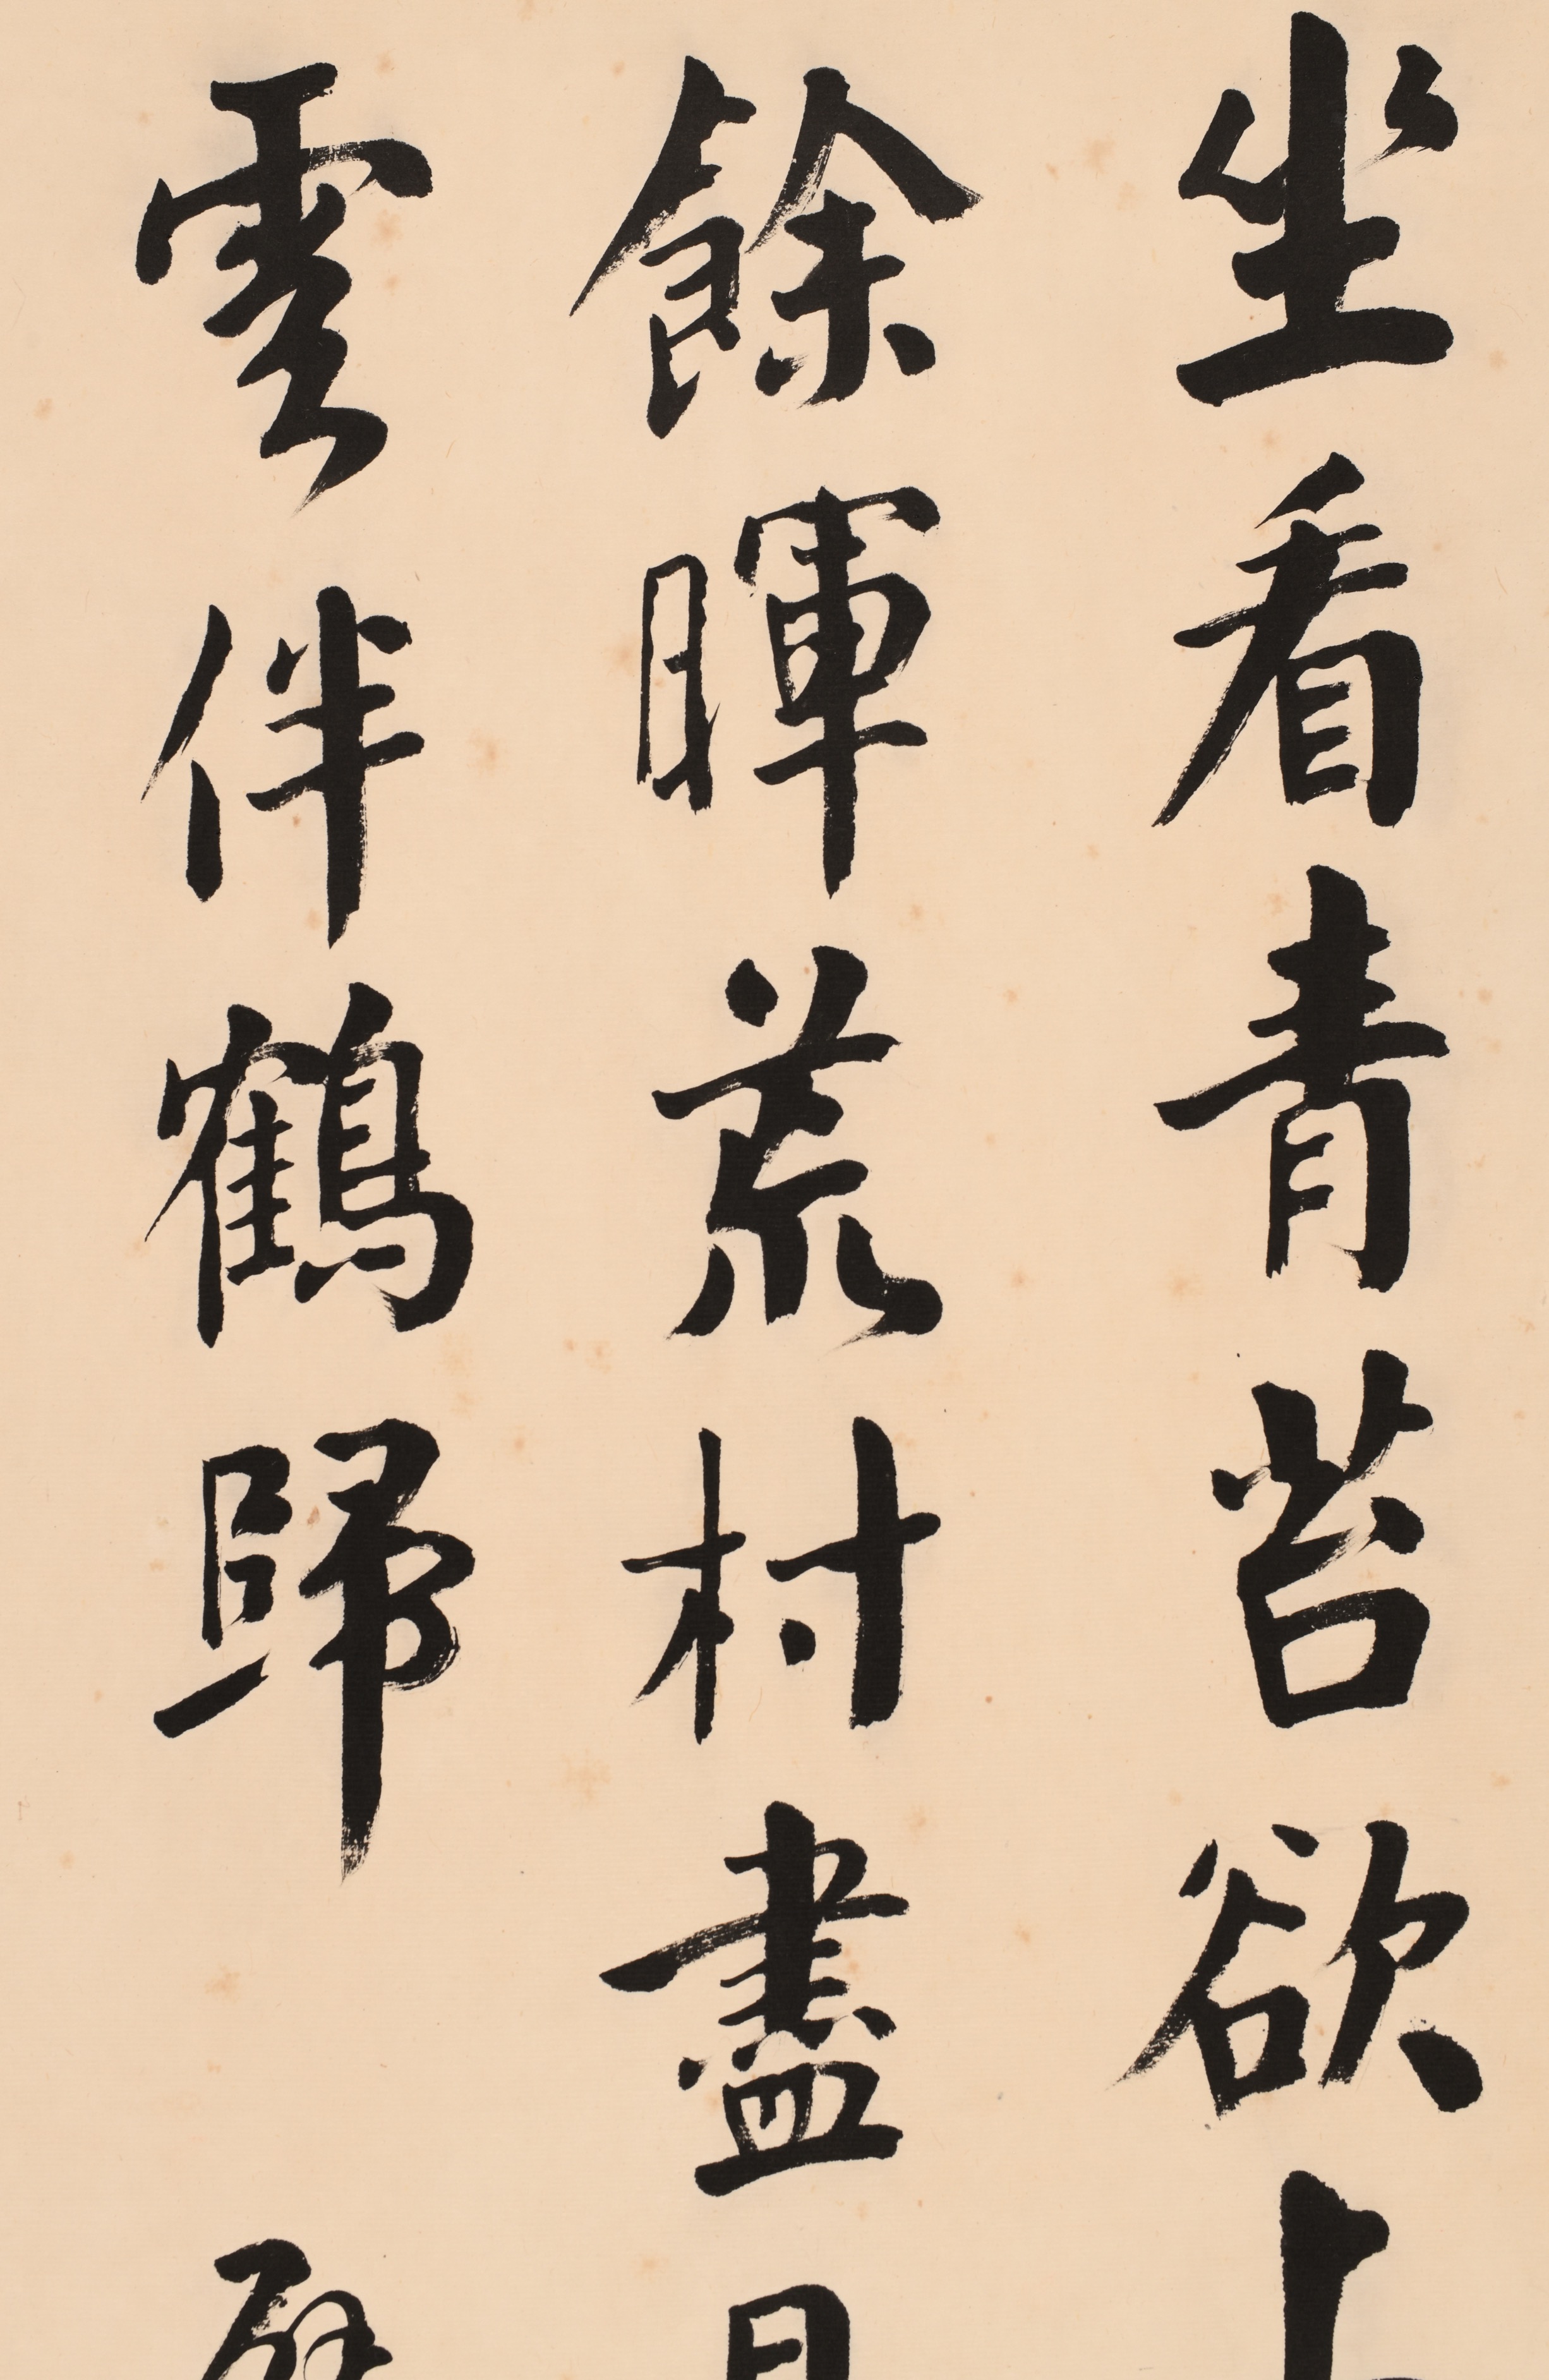 坐看青苔欲上
餘暉荒村盡日
雲伴鶴歸